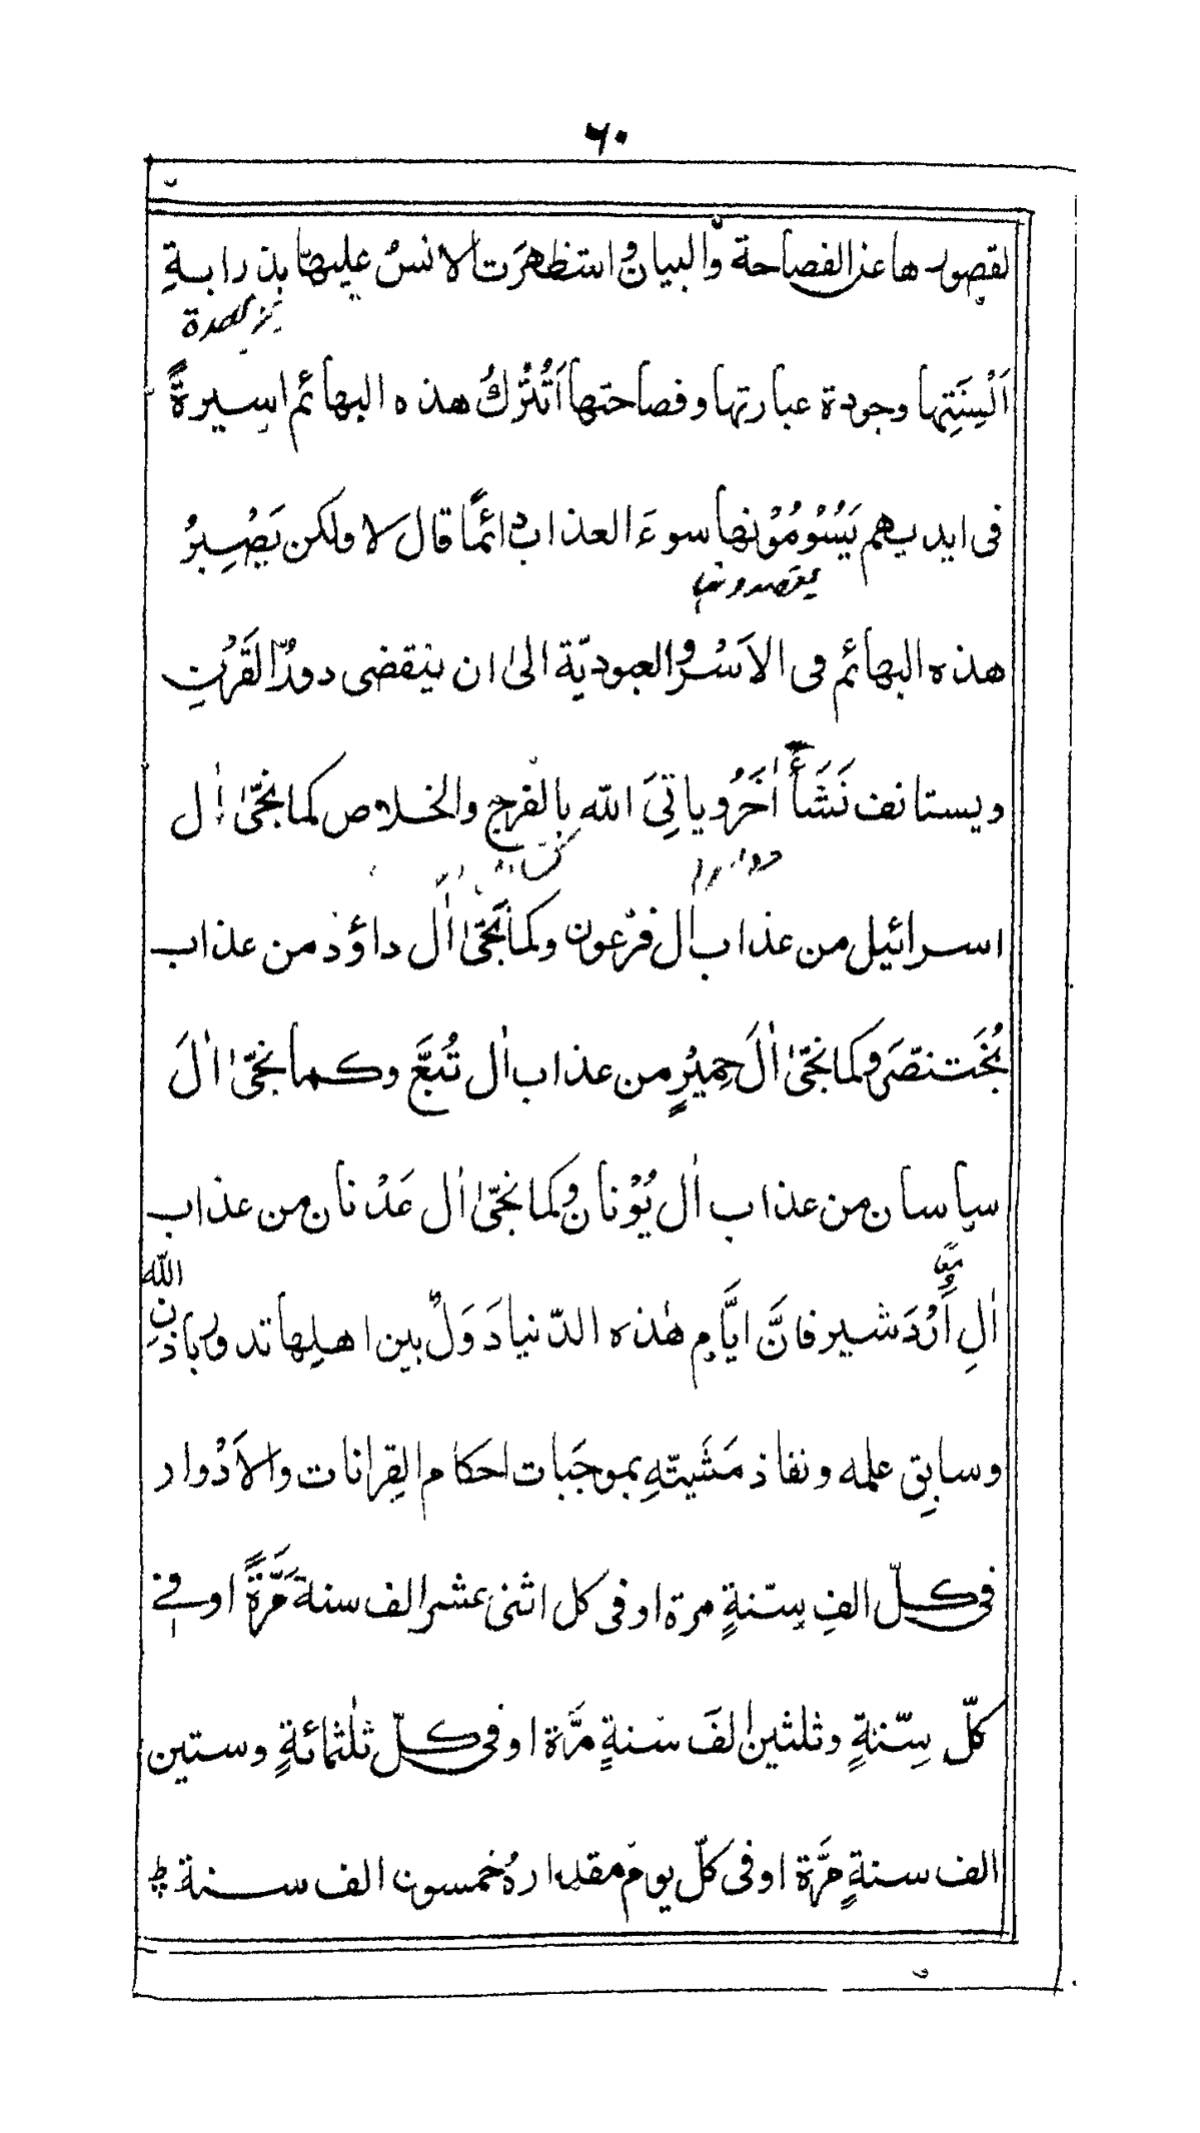 ٦٠
لقصورها عن الفصاحة والبيان واستظهرت الانس عليها بذرابةِ
اَلْسِنَتِها وجودة عبارتها وفصاحتها اَتُتْرَكُ هذه البهائم اسيرةً
فى ايديهم يَسُوْمُوْنها سوءَ العذاب دائمًا قال لا ولكن يَصْبِرُ
يقصدونها
هذه البهائم فى الاَسْر والعبوديّة الىٰ ان ينقضى دورُ القَرْنِ
ويستانف نَشَأٌ اٰخَرُ وياتِىَ الله بالفرج والخلاص كما نجّىٰ اٰل
اسرائيل من عذاب اٰل فرعون وكما نَجّىٰ اٰل داؤد من عذاب
بُخْتَ نصّرَ وكما نجّىٰ اٰلَ حِمِيْرٍ من عذاب اٰل تُبَّع وكما نجّىٰ اٰلَ
ساسان من عذاب اٰل يُوْنان وكما نجّىٰ اٰل عَدْنان من عذاب
اٰلِ اَرْدَشير فانَّ ايَّام هٰذه الدّنيا دَوَلٌ بين اهلها تدور باذنِ الله
وسابق علمه ونفاذ مَشَيتّهِ بموجَبات احكام القِرانات والاَدْوار
فى كلّ الفِ سنةٍ مرة او فى كل اثنى عشر الف سنة مَرَّةً او فى
كلّ ستّةٍ وثلثين الفَ سنةٍ مرَّة او فى كلّ ثلٰثمائةٍ وستين
الف سنةٍ مرَّة او فى كلّ يوم مقدارهُ خمسون الف سنة